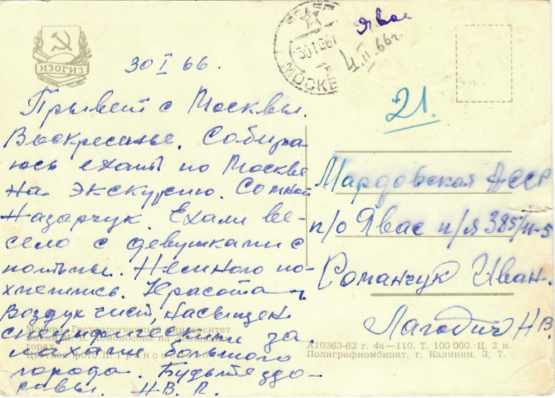 ИЗОГИЗ
30 I 66.
Прывет с Москвы.
Воскресенье. Собира
юсь ехать по Москве
на экскурсию. Со мной
Назарчук. Ехали ве-
село с девушками с
Немного по-
хмелились. Красота и
Воздух чист, насыщен
специфическими за
пахами большого
города. Будьте здо-
ровы. НВ. Л.
МОСКВА
30 1 66
Явас
4.II.66г.
21.
Мардовская АССР
п/о Явас п/я 385/11-5
Романчук Иван.
Лагодич Н.В.
А10363-62 г. 4а—110. Т. 100 000. Ц. 2 к.
Полиграфкомбинат, г. Калинин. З. 7.